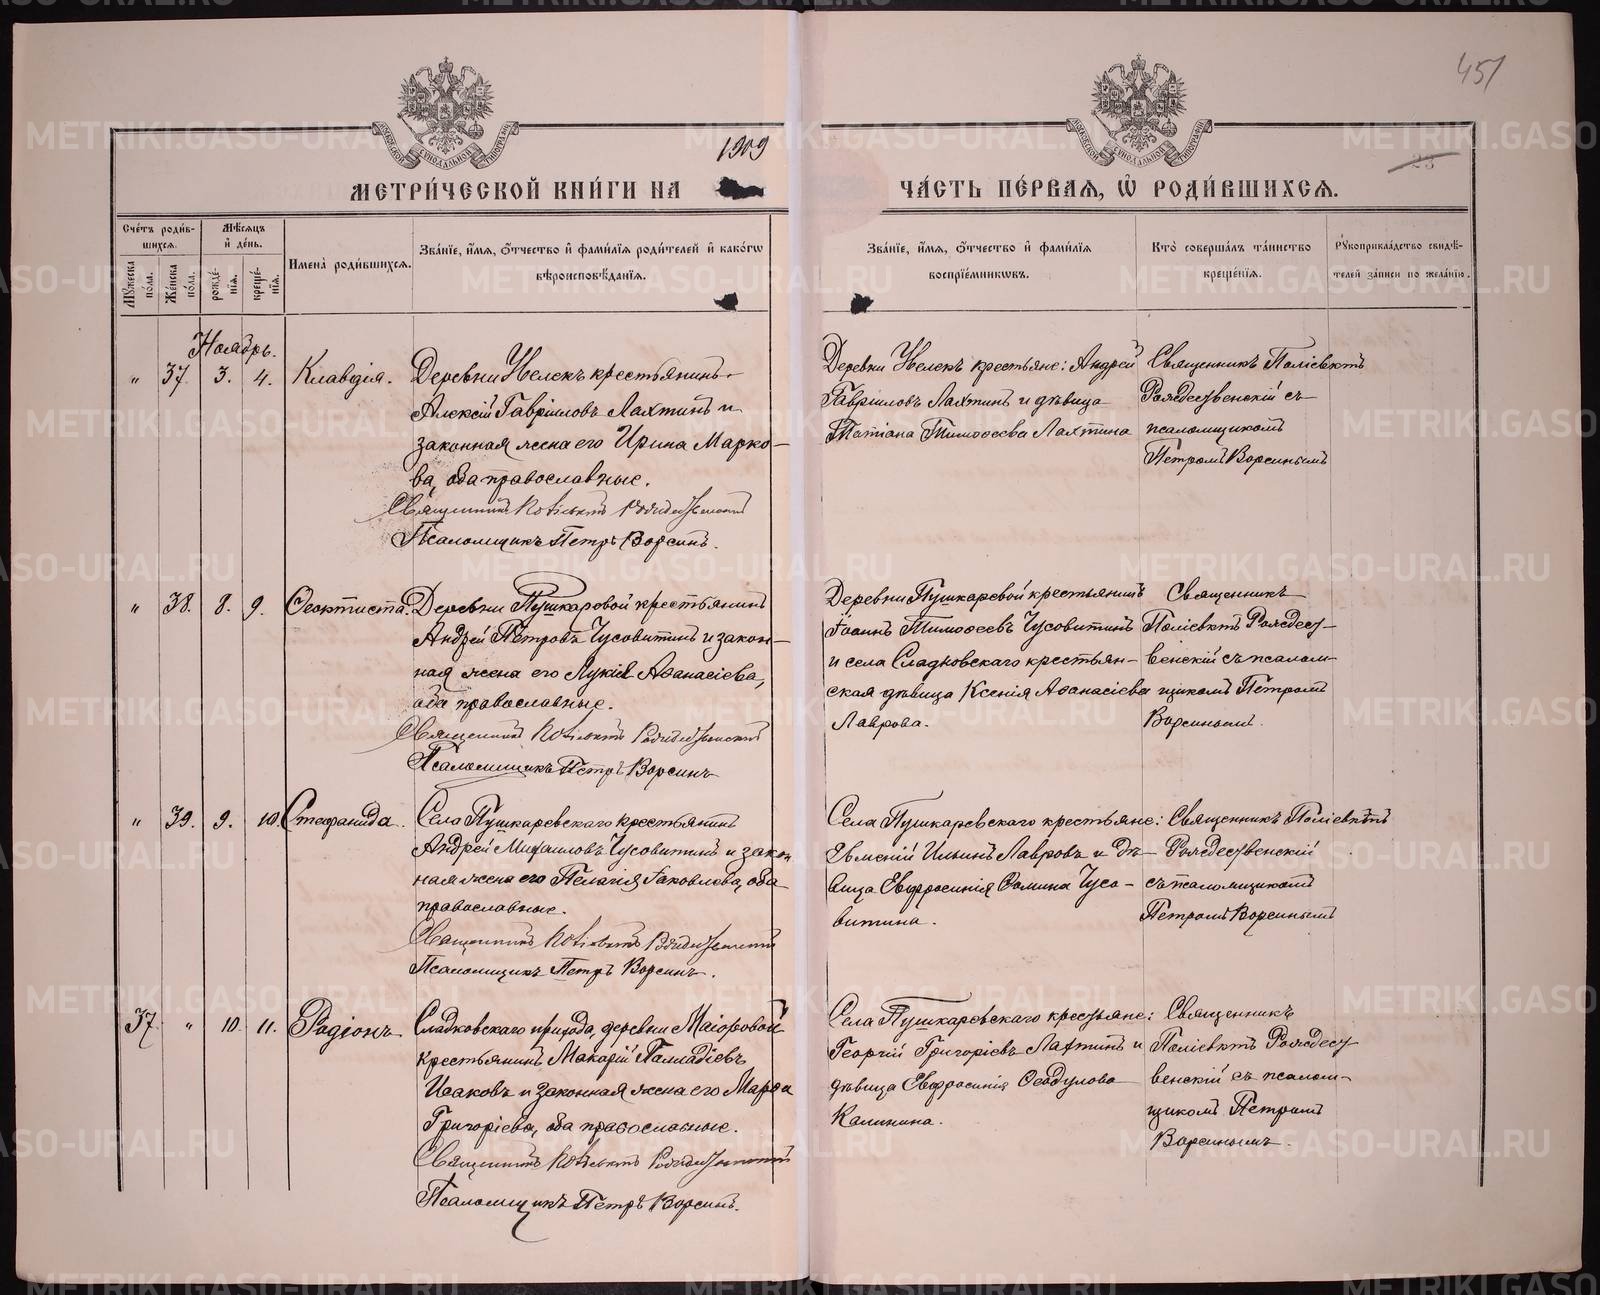 451
1909
МЕТРИ́ЧЕСКОЙ КНИ́ГИ НА
ЧА́СТЬ ПЕ́РВАѦ, Ѡ҆ РОДИ́ВШИХСѦ.
Сче́тъ роди́в-
шихсѧ.
Мѣ́сѧцъ
и҆ де́нь.
Мꙋ́жеска по́ла.
Же́нска по́ла.
рожде́нїѧ.
креще́нїѧ.
И҆мена̀ роди́вшихсѧ.
Зва́нїе, и҆́мѧ, ѻ҆́тчество и҆ фами́лїѧ роди́телей и҆ како́гѡ
вѣроисповѣ́данїѧ.
Зва́нїе, и҆́мѧ, ѻ҆́тчество и҆ фами́лїѧ
воспрїе́мникѡвъ.
Кто̀ соверша́лъ та́инство
креще́нїѧ.
Рꙋкоприкла́дство свидѣ́-
телей за́писи по жела́нїю.
Ноябрь.
" 37. 3. 4. Клавдія.
Деревни Ивлекъ крестьянинъ
Алексій Гавріиловъ Лахтинъ и
законная жена его Ирина Марко-
ва, оба православные.
Священникъ Поліевктъ Рождественскій
Псаломщикъ Петръ Ворсинъ.
Деревни Ивлекъ крестьяне: Андрей
Гавріиловъ Лахтинъ и дѣвица
Татіана Тимоѳеева Лахтина
Священникъ Поліевктъ
Рождественскій съ
псаломщикомъ
Петромъ Ворсинымъ
" 38. 8. 9. Ѳеоктиста.
Деревни Пушкаровой крестьянинъ
Андрей Петровъ Чусовитинъ и закон-
ная жена его Лукія Аѳанасіева,
оба православные.
Священникъ Поліевктъ Рождественскій
Псаломщикъ Петръ Ворсинъ
Деревни Пушкаревой крестьянинъ
Іоаннъ Тимоѳеевъ Чусовитинъ
и села Сладковскаго крестьян-
ская дѣвица Ксенія Аѳанасіева
Лаврова.
Священникъ
Поліевктъ Рождест-
венскій съ псалом-
щикомъ Петромъ
Ворсинымъ.
" 39. 9. 10. Стефанида.
Села Пушкаревскаго крестьянинъ
Андрей Михаиловъ Чусовитинъ и закон
ная жена его Пелагія Іаковлева, оба
православные.
Священникъ Поліевктъ Рождественскій
Псаломщикъ Петръ Ворсинъ.
Села Пушкаревскаго крестьяне:
Евмений Ильинъ Лавровъ и дѣ-
вица Евфросинія Ѳомина Чусо-
витина.
Священникъ Поліевктъ
Рождественскій
съ псаломщикомъ
Петромъ Ворсинымъ
37. " 10. 11. Родіонъ
Сладковскаго прихода, деревни Маіоровой
крестьянинъ Макарій Палладіевъ
Исаковъ и законная жена его Марѳа
Григоріева, оба православные.
Священникъ Поліевктъ Рождественскій
Псаломщикъ Петръ Ворсинъ.
Села Пушкаревскаго крестьяне:
Георгій Григоріевъ Лахтинъ и
дѣвица Евфросинія Ѳеодулова
Калинина.
Священникъ
Поліевктъ Рождест
венскій съ псалом-
щикомъ Петромъ
Ворсинымъ.
METRIKI.GASO-URAL.RU